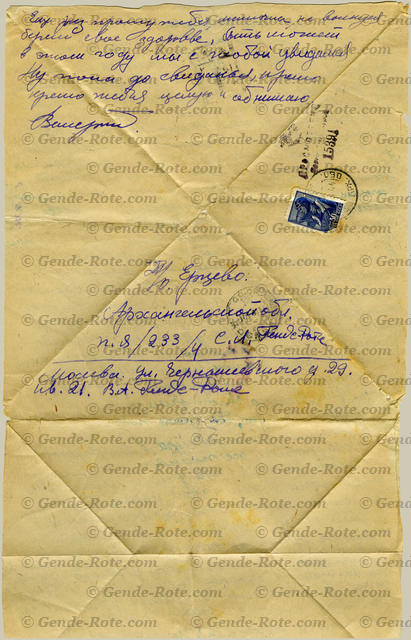 Еще раз прошу тебя пиши
береги свое здоровье, быть может
в этом году мы с тобой увидимся
Ну пока до свиданья, крепко
крепко тебя целую и обнимаю
Валерий
15381
п. Ерцево.
Архангельской обл.
п. Я/233/У С.Л. Генде-Роте
Москва. ул. Чернышевского д 29.
кв. 21. В.А. Генде-Роте
© Gende-Rote.com